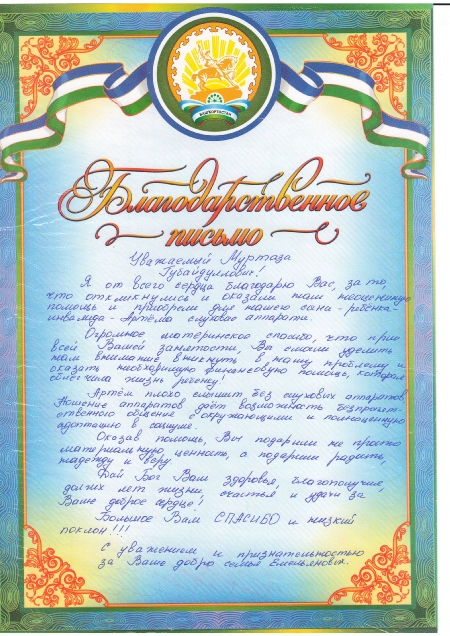 БАШКОРТОСТАН
Благодарственное
письмо
Уважаемый Муртаза
Губайдуллович!
Я от всего сердца благодарю Вас, за то,
что откликнулись и оказали нам неоценимую
помощь в приобрем для нашего сына - ребенка-
инвалида - Артёма слуховые аппараты.
Огромное материнское спасибо, что при
всей Вашей занятости, Вы смогли уделить
нам внимание вникнуть в нашу проблему и
оказать необходимую финансовую помощь, которая
облегчила жизнь ребенку!
Артём плохо слышит без слуховых аппаратов.
Ношение аппаратов даёт возможность безпрепят-
ственного общения с окружающими и полноценную
адаптацию в социуме.
Оказав помощь, Вы подарили не просто
материальную ценность, а подарили радость,
надежду и веру.
Дай Бог Вам здоровья, благополучия,
долгих лет жизни, счастья и удачи за
Ваше доброе сердце!
Большое Вам СПАСИБО и низкий
поклон!!!
С уважением и признательностью
за Ваше добро семья Емельянович.